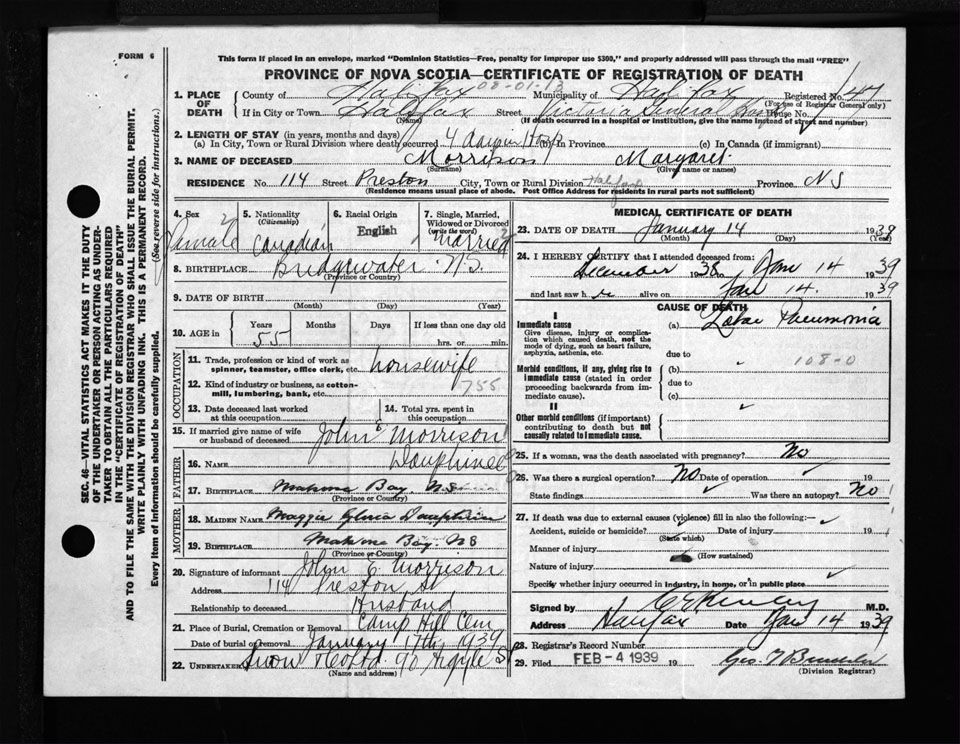 FORM 6
This form if placed in an envelope, marked "Dominion Statistics—Free, penalty for improper use $300," and properly addressed will pass through the mail "FREE"
PROVINCE OF NOVA SCOTIA—CERTIFICATE OF REGISTRATION OF DEATH
1. PLACE OF DEATH
County of Halifax Municipality of Halifax Registered No. 47
(For use of Registrar General only)
If in City or Town Halifax Street Victoria General Hosp House No.
(Name) (If death occurred in a hospital or institution, give the name instead of street and number)
2. LENGTH OF STAY (in years, months and days)
(a) In City, Town or Rural Division where death occurred 4 days in Hosp (b) In Province (c) In Canada (if immigrant)
3. NAME OF DECEASED Morrison Margaret
(Surname) (Given name or names)
RESIDENCE No. 114 Street Preston City, Town or Rural Division Halifax Province N S
(Residence means usual place of abode. Post Office Address for residents in rural parts not sufficient)
4. Sex Female
5. Nationality (Citizenship) Canadian
6. Racial Origin English
7. Single, Married, Widowed or Divorced (write the word) Married
8. BIRTHPLACE Bridgewater N.S.
(Province or Country)
9. DATE OF BIRTH
(Month) (Day) (Year)
10. AGE in Years Months Days If less than one day old
55 hrs. or min.
OCCUPATION
11. Trade, profession or kind of work as spinner, teamster, office clerk, etc. housewife
12. Kind of industry or business, as cotton-mill, lumbering, bank, etc. 755
13. Date deceased last worked at this occupation
14. Total yrs. spent in this occupation
15. If married give name of wife or husband of deceased John E Morrison
FATHER
16. Name Dauphinee
17. Birthplace Mahone Bay. N.S
(Province or Country)
MOTHER
18. MAIDEN NAME Maggie Dauphinee
19. Birthplace Mahone Bay. NS
(Province or Country)
20. Signature of informant John E. Morrison
Address 114 Preston St
Relationship to deceased Husband
21. Place of Burial, Cremation or Removal Camp Hill Cem
Date of burial or removal January 17th 1939
22. UNDERTAKER Snow & Co Ltd. 90 Argyle St
(Name and address)
MEDICAL CERTIFICATE OF DEATH
23. DATE OF DEATH January 14 1939
(Month) (Day) (Year)
24. I HEREBY CERTIFY that I attended deceased from:
December 1938 to Jan 14 1939
and last saw h er alive on Jan 14. 1939
CAUSE OF DEATH
I
Immediate cause
Give disease, injury or complication which caused death, not the mode of dying, such as heart failure, asphyxia, asthenia, etc.
(a) Lobar Pneumonia
due to
Morbid conditions, if any, giving rise to immediate cause (stated in order proceeding backwards from immediate cause).
(b) 108-0
due to
(c)
II
Other morbid conditions (if important) contributing to death but not causally related to immediate cause.
25. If a woman, was the death associated with pregnancy? No
26. Was there a surgical operation? No Date of operation 19
State findings Was there an autopsy? No
27. If death was due to external causes (violence) fill in also the following:—
Accident, suicide or homicide? Date of injury 19
(State which)
Manner of injury
(How sustained)
Nature of injury
Specify whether injury occurred in industry, in home, or in public place
Signed by M.D.
Address Halifax Date Jan 14 1939
28. Registrar's Record Number
29. Filed FEB -4 1939 19
(Division Registrar)
SEC. 46—VITAL STATISTICS ACT MAKES IT THE DUTY
OF THE UNDERTAKER OR PERSON ACTING AS UNDERTAKER TO OBTAIN ALL THE PARTICULARS REQUIRED
IN THE "CERTIFICATE OF REGISTRATION OF DEATH"
AND TO FILE THE SAME WITH THE DIVISION REGISTRAR WHO SHALL ISSUE THE BURIAL PERMIT.
WRITE PLAINLY WITH UNFADING INK. THIS IS A PERMANENT RECORD.
Every item of Information should be carefully supplied. (See reverse side for instructions.)